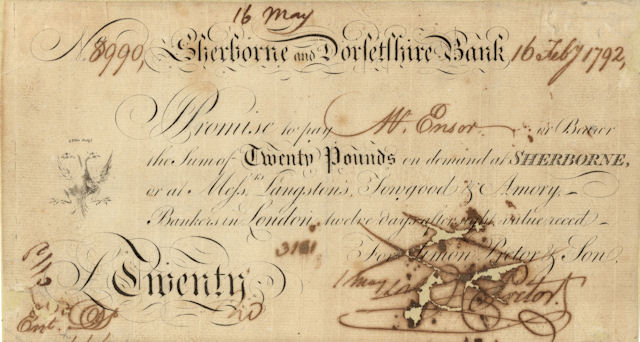 16 May
No. 8990, Sherborne and Dorsetshire Bank 16 Feby 1792,
I Promise to pay Mr. Ensor or Bearer
the Sum of Twenty Pounds on demand at SHERBORNE,
or at Messrs. Langston's, Towgood & Amory,
Bankers in London, twelve days after sight, value reced
3181
For Simon Pretor & Son.
£ Twenty
1 May
Pretor
Entd.